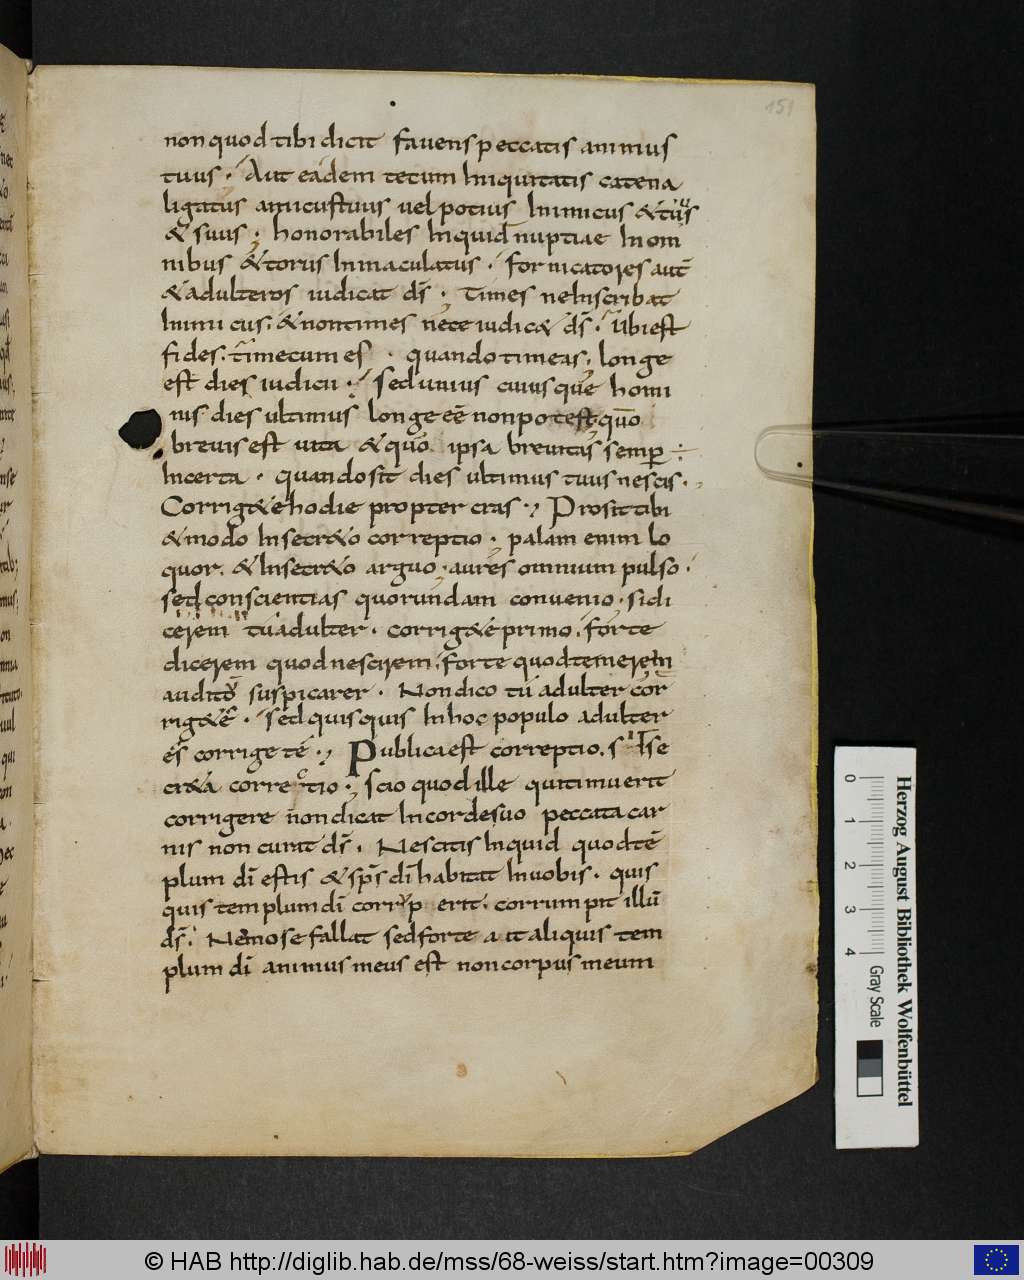 151
non quod tibi dicit favens peccatis animus
tuus · Aut eadem tecum Iniquitatis catena
ligatus amicus tuus vel potius Inimicus & tuus
& suus · honorabiles Inquid nuptiae In om
nibus & torus Inmaculatus · fornicatores aut̄
& adulteros iudicat dś · Times ne Inscribat
Inimicus · & non times ne te iudic& dś · Ubi est
fides · time cum es · quando timeas · longe
est dies iudicii · sed unius cuiusque homi
nis dies ultimus longe eē non potest · quō
brevis est vita & quō ipsa brevitas semp̄
Incerta · quando sit dies ultimus tuus nescis ·
Corrig& te hodie propter cras · Prosit tibi
& modo In secr&o correptio · palam enim lo
quor · & In secr&o arguo · aures omnium pulso ·
sed conscientias quorundam convenio · si di
cerem tu adulter · corrig& te primo · forte
dicerem quod nescirem · forte quod temere In
audito suspicarer · Non dico tu adulter cor
rig& te · sed quisquis In hoc populo adulter
es corrige te · Publica est correptio · s Ise
cr&a correctio · scio quod ille qui timuerit
corrigere non dicat In corde suo peccata car
nis non curat dś · Nescitis Inquid quod tē
plum dī estis & spś dī habitat In vobis · quis
quis templum dī corrup erit · corrumpit illū
dś · Nemo se fallat sed forte ait aliquis tem
plum dī animus meus est non corpus meum
0 1 2 3 4
Gray Scale
Herzog August Bibliothek Wolfenbüttel
© HAB http://diglib.hab.de/mss/68-weiss/start.htm?image=00309